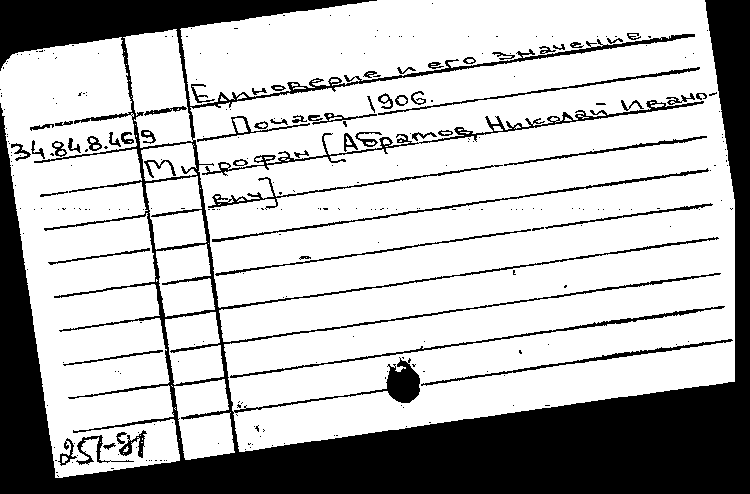 Единоверие и его значение.
Почаев, 1906.
34.84.8.469
Митрофан [Абрамов, Николай Ивано-
вич].
251-81